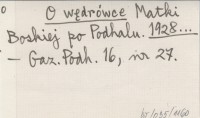 O wędrówce Matki
Boskiej po Podhalu. 1928...
– Gaz. Podh. 16, nr 27.